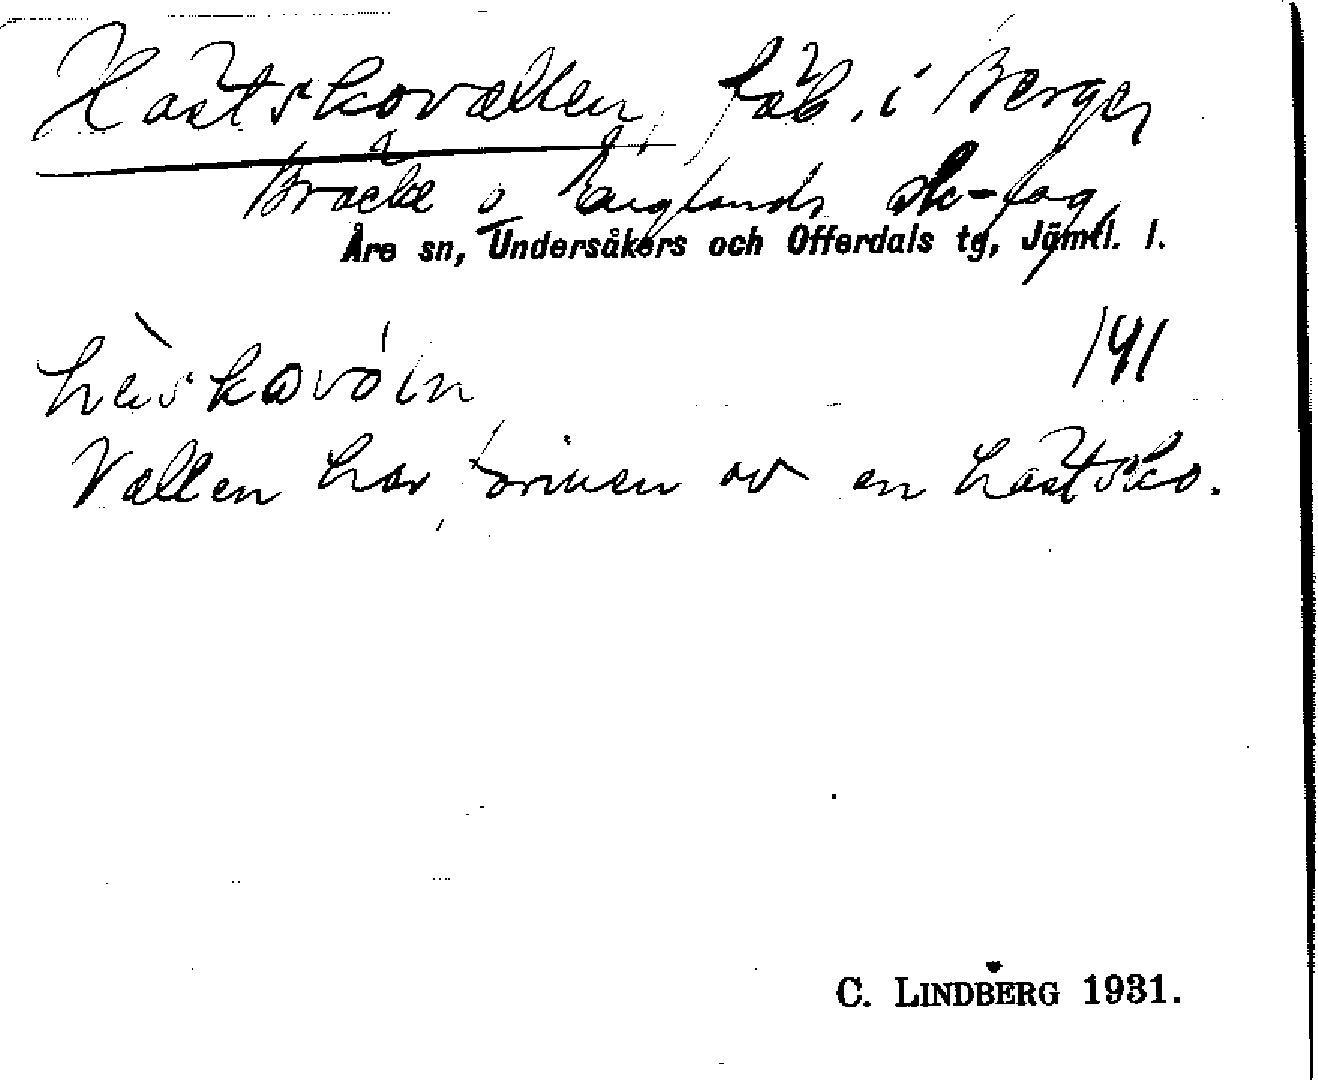 Hästskovallen, fäb. i Berger
Bräcke o Englands sk-lag
Åre sn, Undersåkers och Offerdals tg, Jämtl. l.
141
Vallen har formen av en hästsko.
C. LINDBERG 1931.